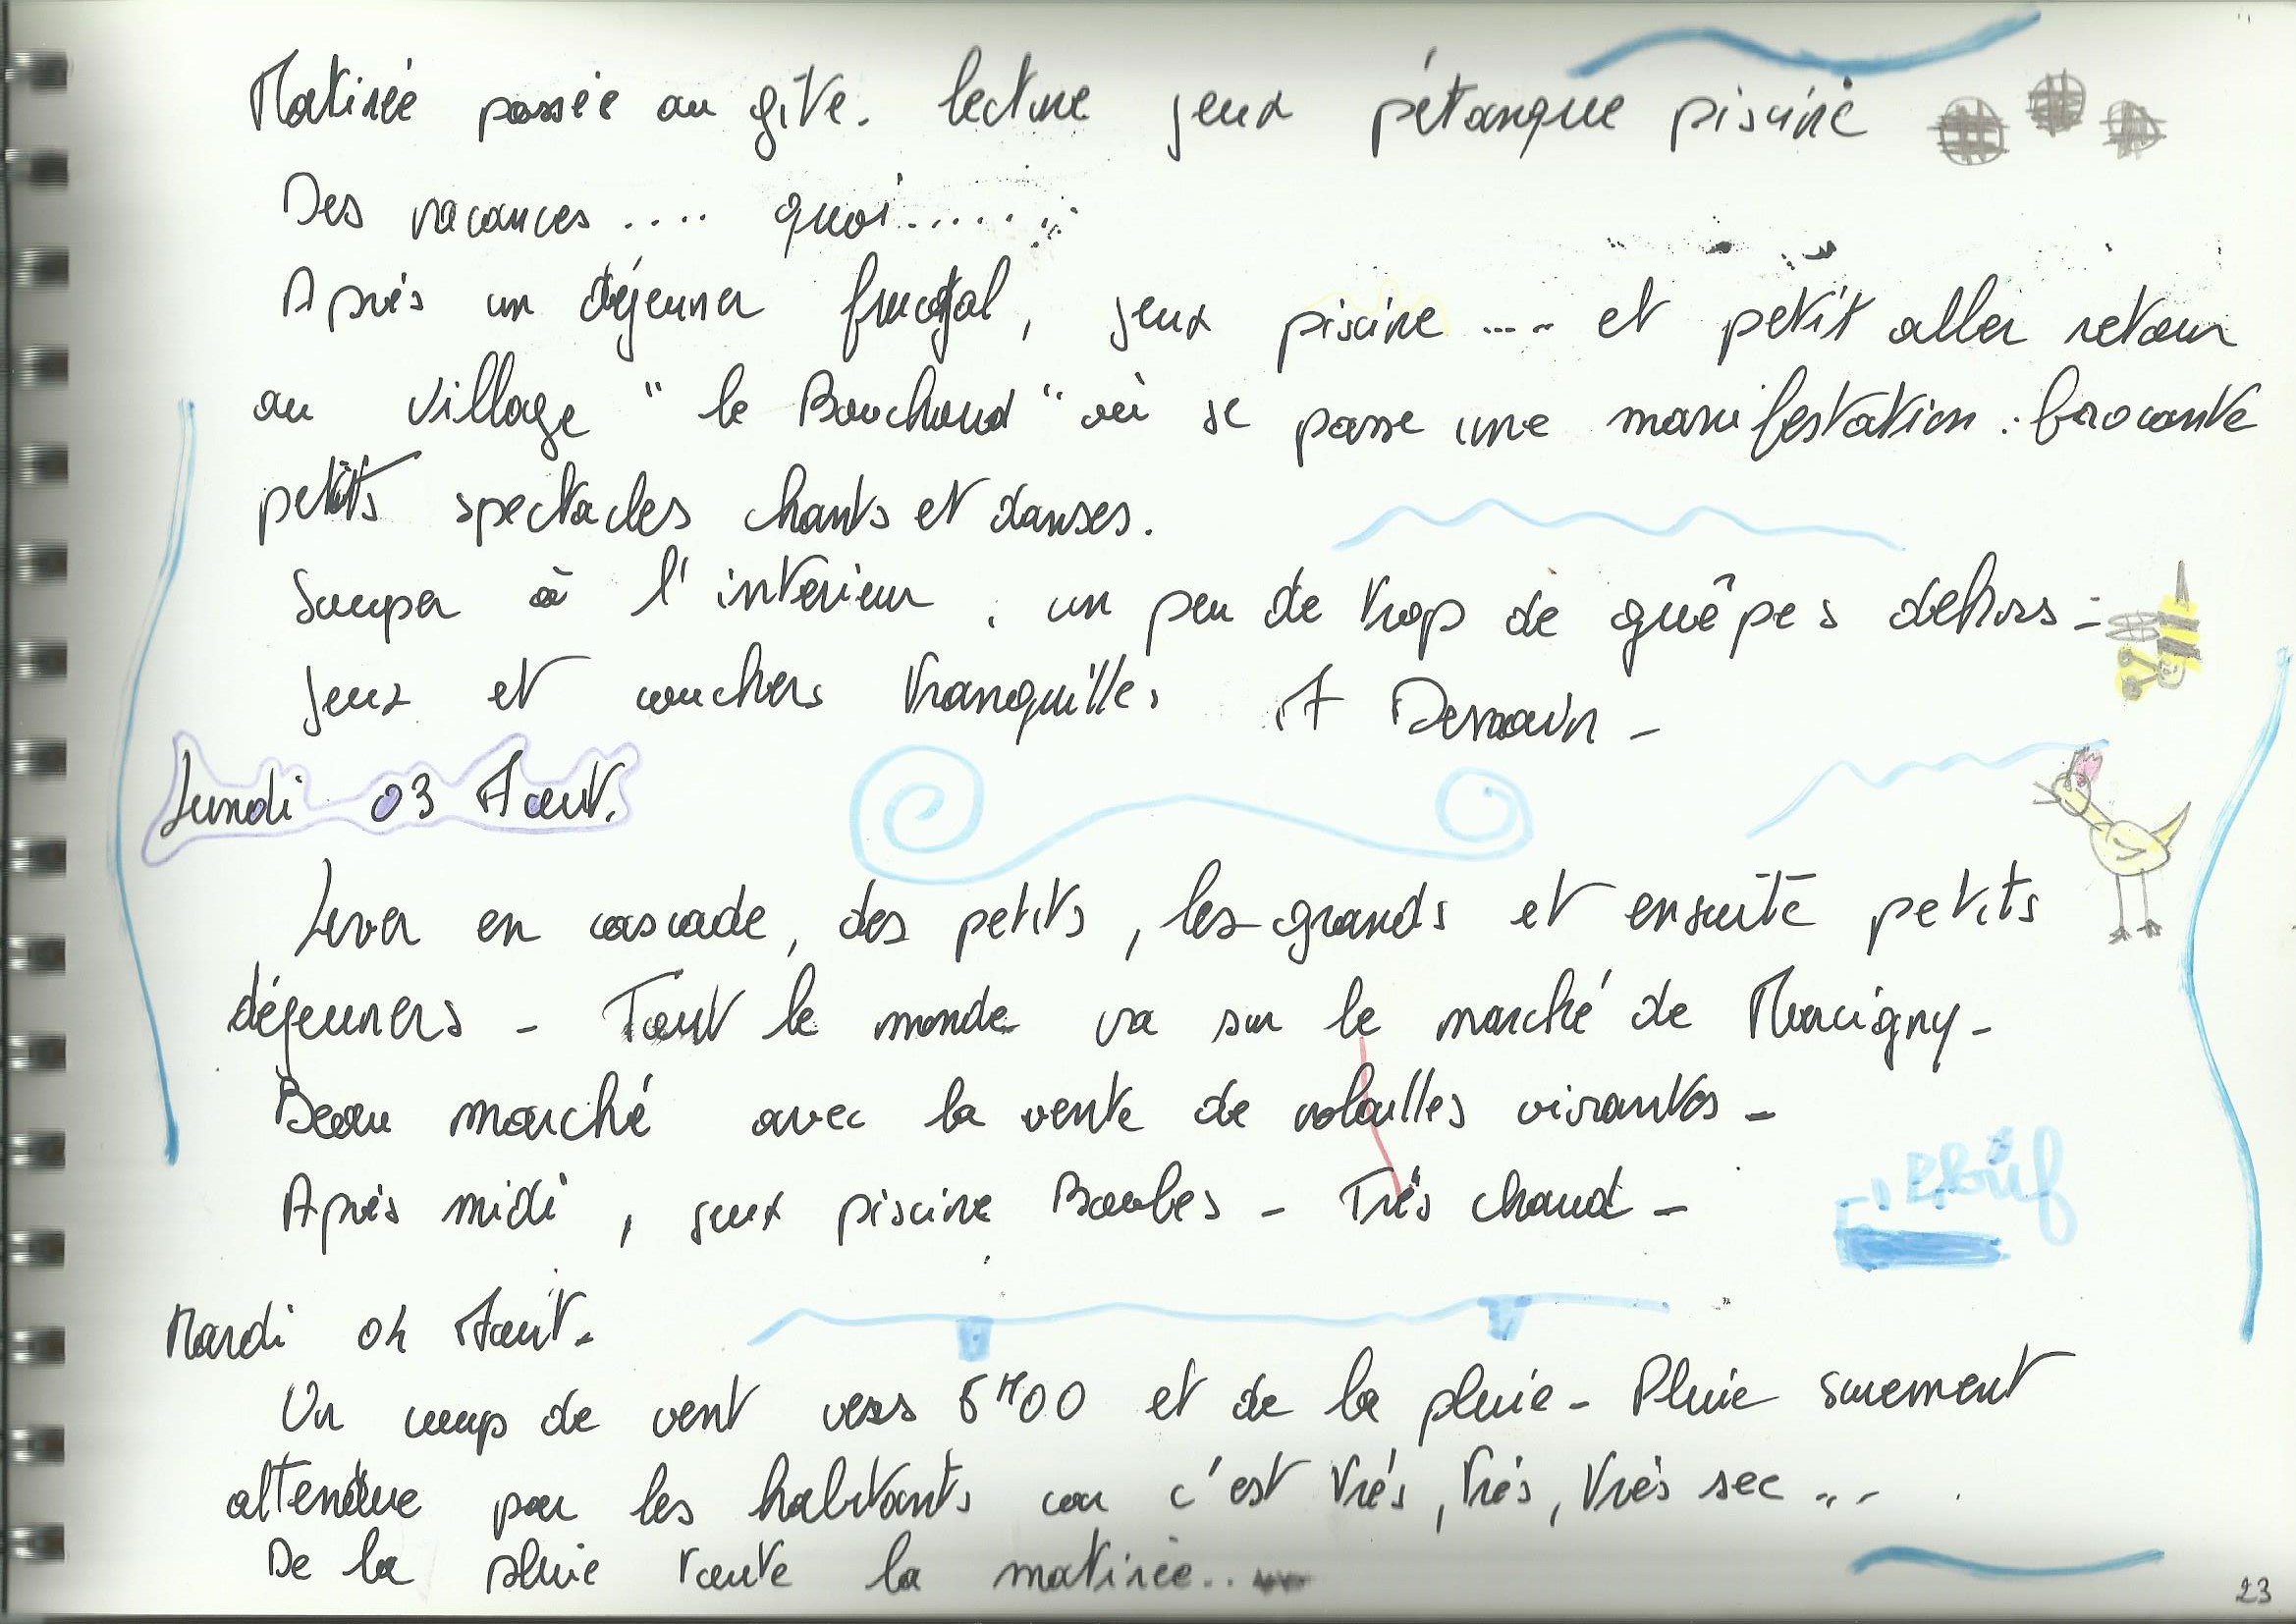 Matinée passée au gîte. lecture jeux pétanque piscine
Des vacances .... quoi.......
Après un déjeuner frugal, jeux piscine .... et petit aller retour
au village "le Bouchaud" où se passe une manifestation : brocante
petits spectacles chants et danses.
Souper à l'intérieur, un peu de trop de guêpes dehors -
Jeux et couchers tranquilles A Demain -
Lundi 03 Aout.
Lever en cascade, des petits, les grands et ensuite petits
déjeuners - Tout le monde va sur le marché de Marcigny -
Beau marché avec la vente de volailles vivantes -
Après midi, jeux piscine Boules - Très chaud -
Plouf
Mardi 04 Aout.
Un coup de vent vers 6H00 et de la pluie - Pluie surement
attendue par les habitants car c'est très, très, très sec ...
De la pluie toute la matinée..
23